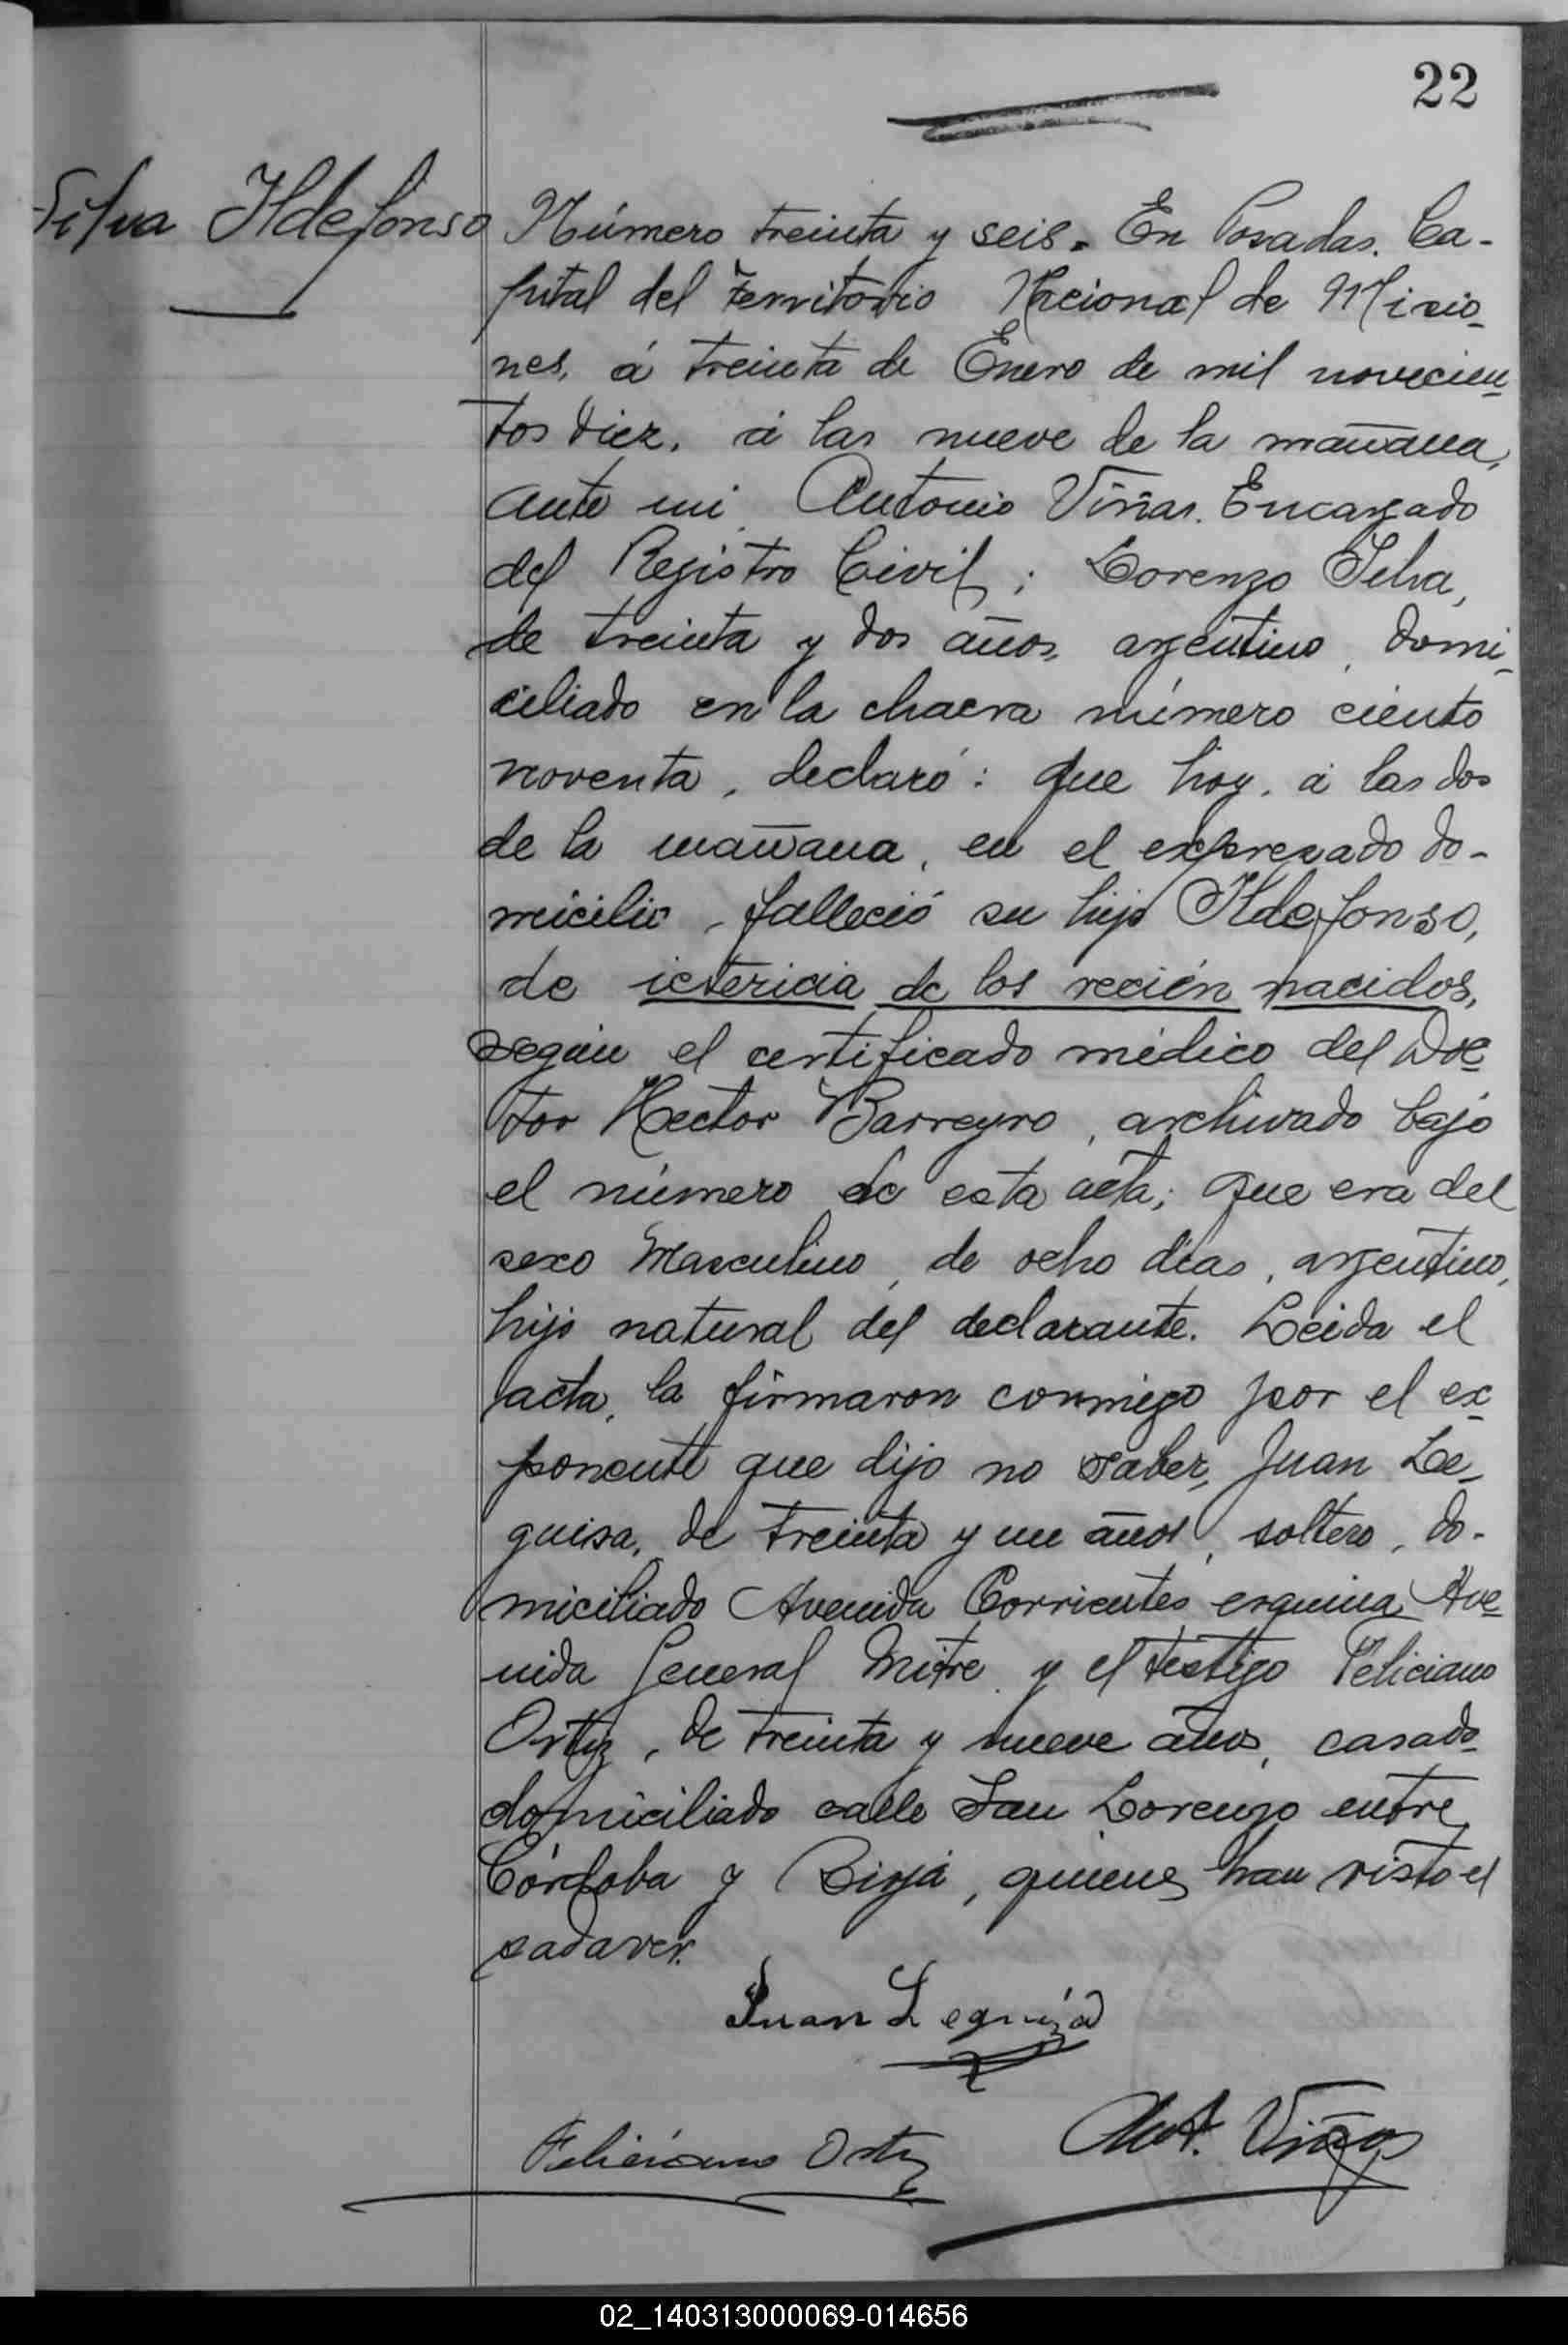 22
Silva Ildefonso
Número treinta y seis. En Posadas. Ca-
pital del Territorio Nacional de Misio-
nes, á treinta de Enero de mil novecien-
tos diez, á las nueve de la mañana,
ante mi Antonio Viñas. Encargado
del Registro Civil; Lorenzo Silva,
de treinta y dos años, argentino, domi-
ciliado en la chacra número ciento
noventa, declaró: que hoy, á las dos
de la mañana, en el expresado do-
micilio, falleció su hijo Ildefonso,
de ictericia de los recién nacidos,
según el certificado médico del Doc-
tor Hector Barreyro, archivado bajo
el número de esta acta; que era del
sexo Masculino, de ocho días, argentino,
hijo natural del declarante. Leida el
acta, la firmaron conmigo por el ex-
ponente que dijo no saber, Juan Le-
guisa, de treinta y un años, soltero, do-
miciliado Avenida Corrientes esquina Ave-
nida General Mitre y el testigo Feliciano
Ortiz, de treinta y nueve años, casado
domiciliado calle San Lorenzo entre
Córdoba y Rioja, quienes han visto el
cadaver.
Juan Leguiza
Feliciano Ortiz
Ant. Viñas
02_140313000069-014656